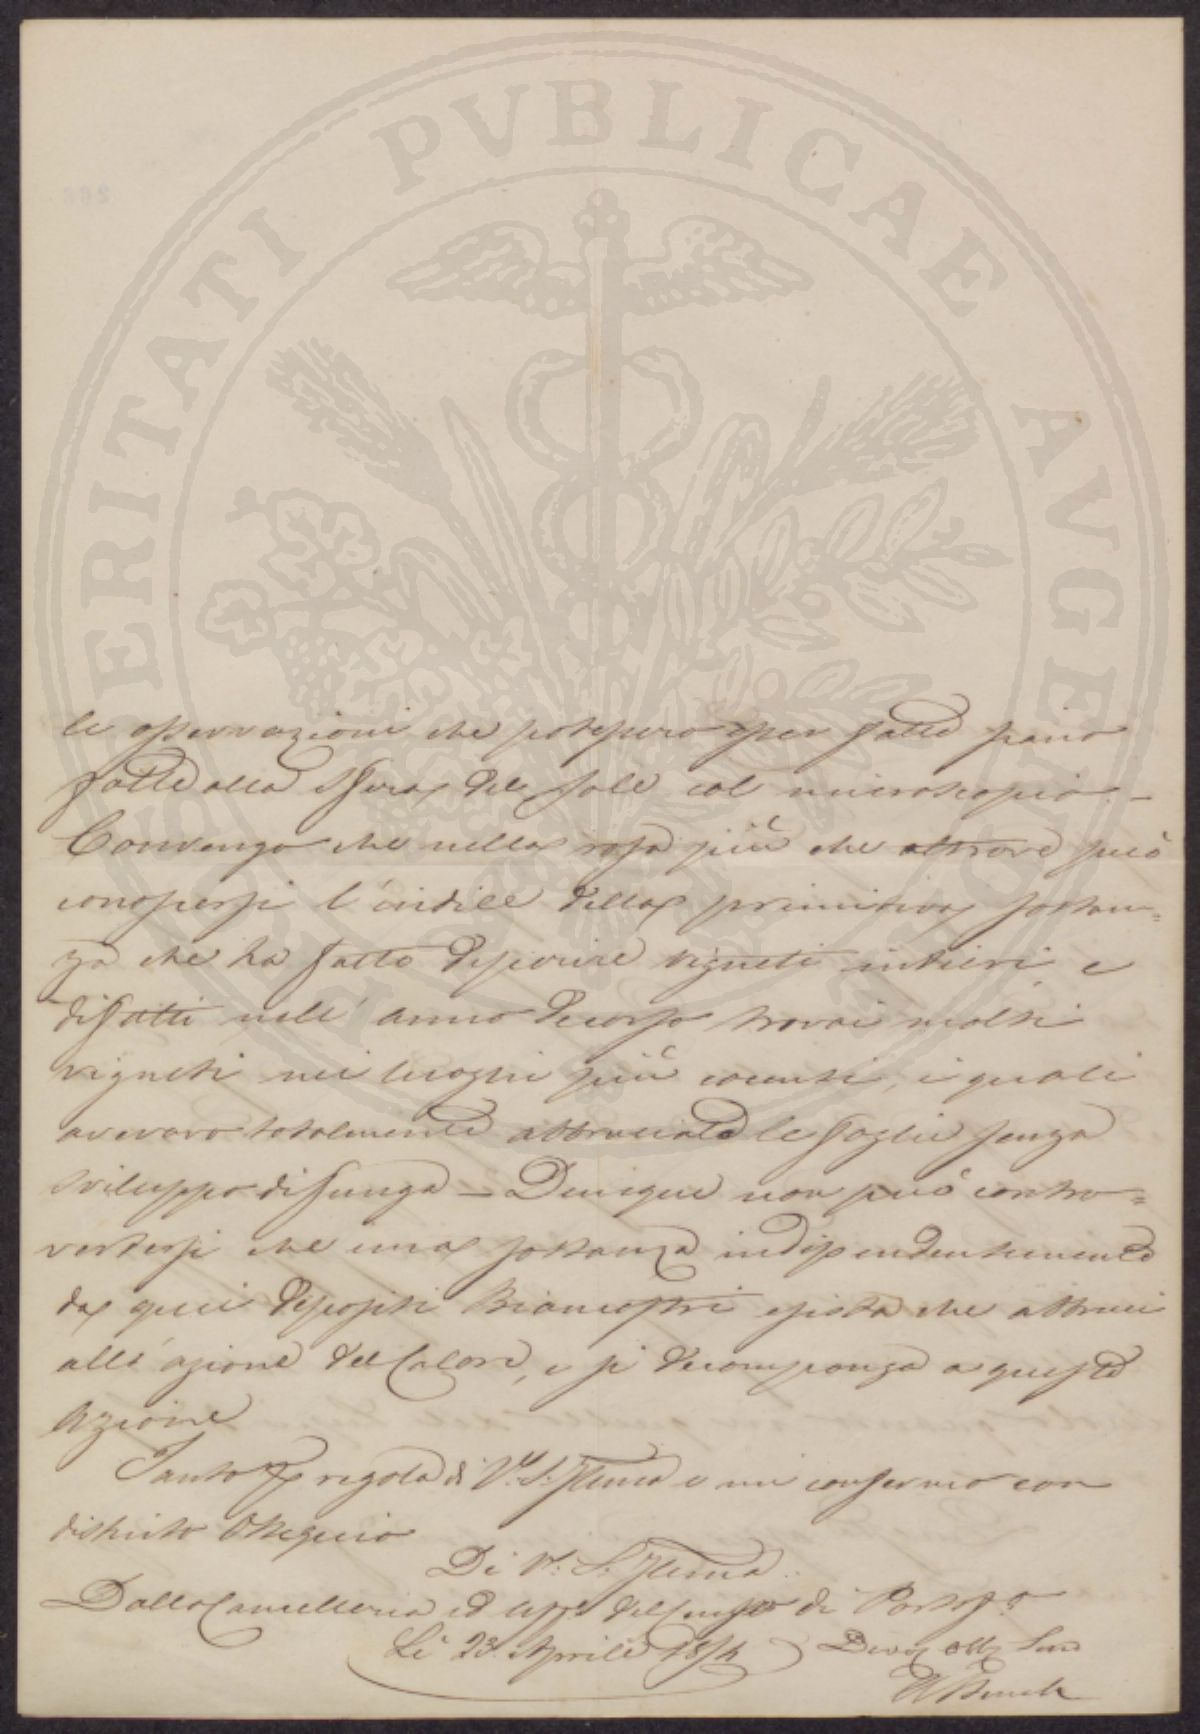 PROSPERITATI PVBLICAE AVGENDAE
le osservazioni che potessero esser fatte siano
fatte alla sfera del sole col microscopio –
Convengo che nella rosa più che altrove può
conoscersi l'indole della primitiva sostan=
za che ha fatto deperire vigneti intieri e
difatti nell'anno decorso trovai molti
vigneti nei luoghi più cocenti, i quali
avevano totalmente abbruciate le foglie senza
sviluppo di funga – Dunque non può contro=
vertersi che una sostanza indipendentemente
da quei depositi biancastri esista che abbruci
all'azione del Calore, e si decomponga a questa
azione
Tanto per regola di V. S. Illma e mi confermo con
distinto Ossequio
Di V. S. Illma
Dalla Cancelleria ed Uffo del Censo di
Li 23 Aprile 1854 Devo Obbo Serv